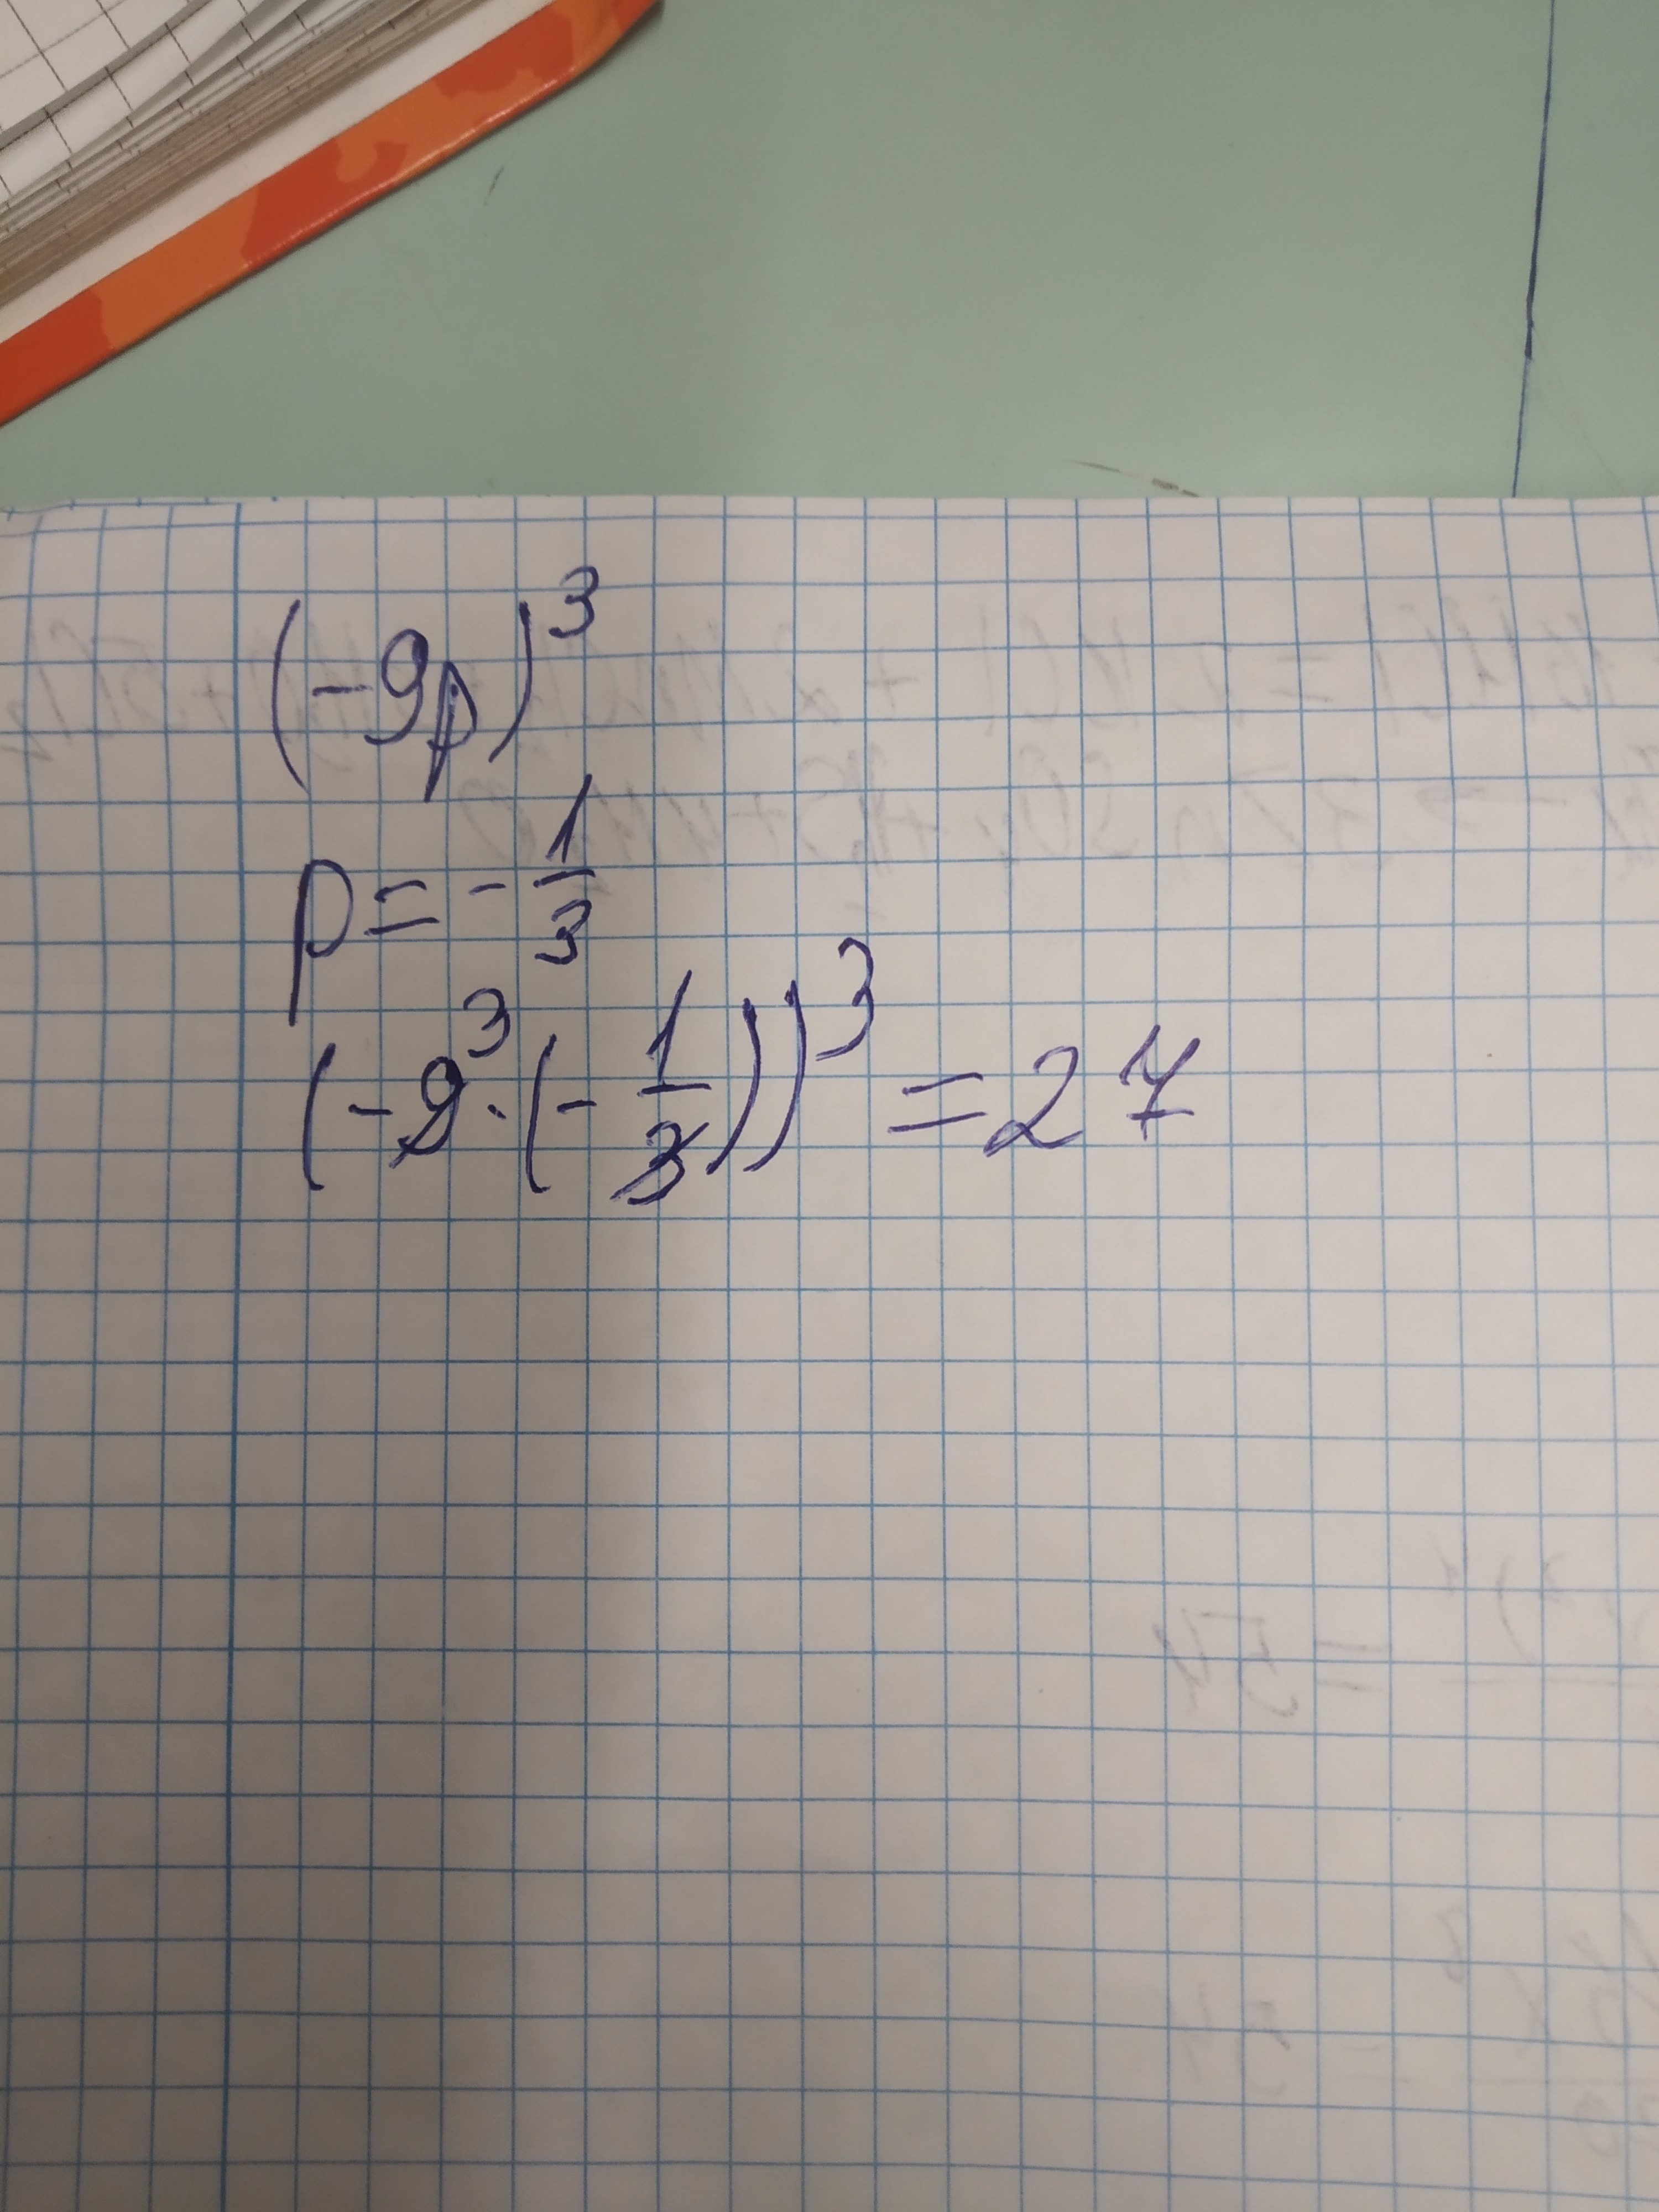 (-9p)³
p = -1/3
(-9³·(-1/3))³ = 27